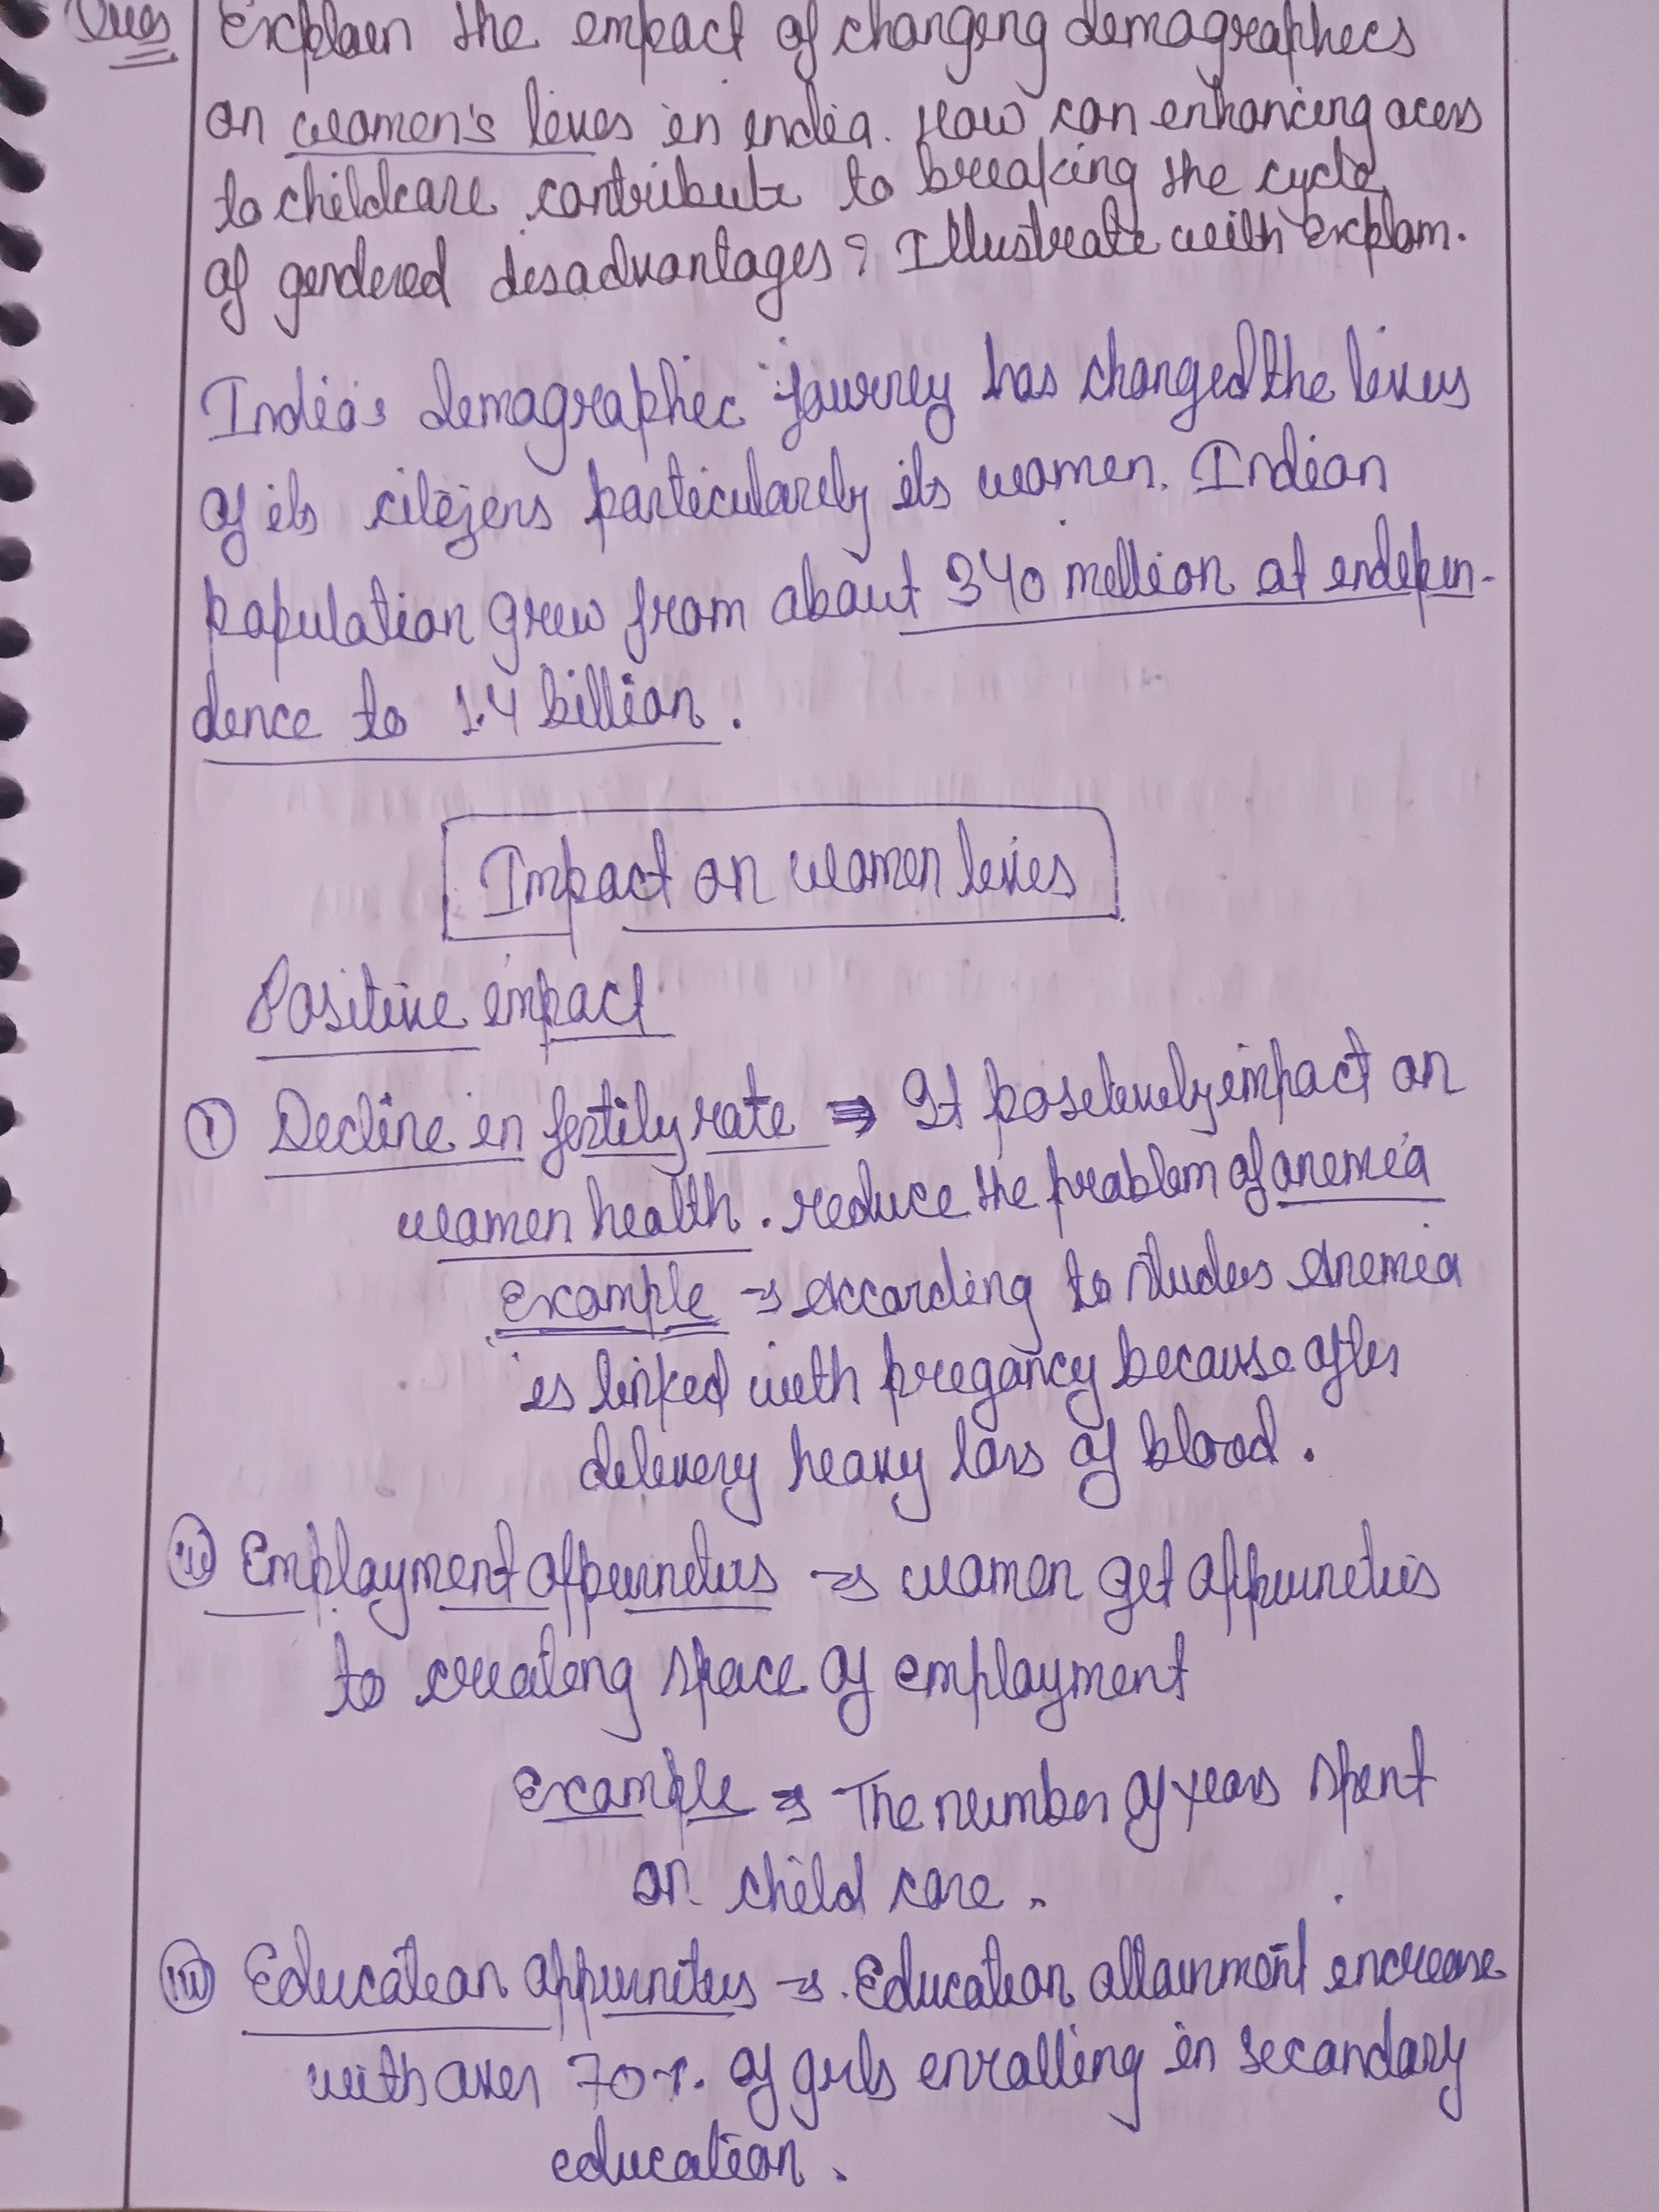 Ques Explain the impact of changing demographics
on women's lives in india. How can enhancing acess
to childcare contribute to breaking the cycle
of gendered disadvantages? Illustrate with Explam.
India's demographic journey has changed the lives
of its citizens particularly its women. Indian
population grew from about 340 million at indepen-
dence to 1.4 billion.
Impact on women lives
Positive impact
(i) Decline in fertily rate ⇒ It positively impact on
women health. reduce the problem of anemia
Example ⇒ According to studies Anemia
is linked with pregancy because after
delivery heavy loss of blood.
(ii) Employment oppurneties ⇒ women get oppurneties
to creating space of employment
Example ⇒ The number of years spent
on child care.
(iii) Education oppurnities ⇒ Education attainment increase
with over 70%. of girls enrolling in secondary
education.